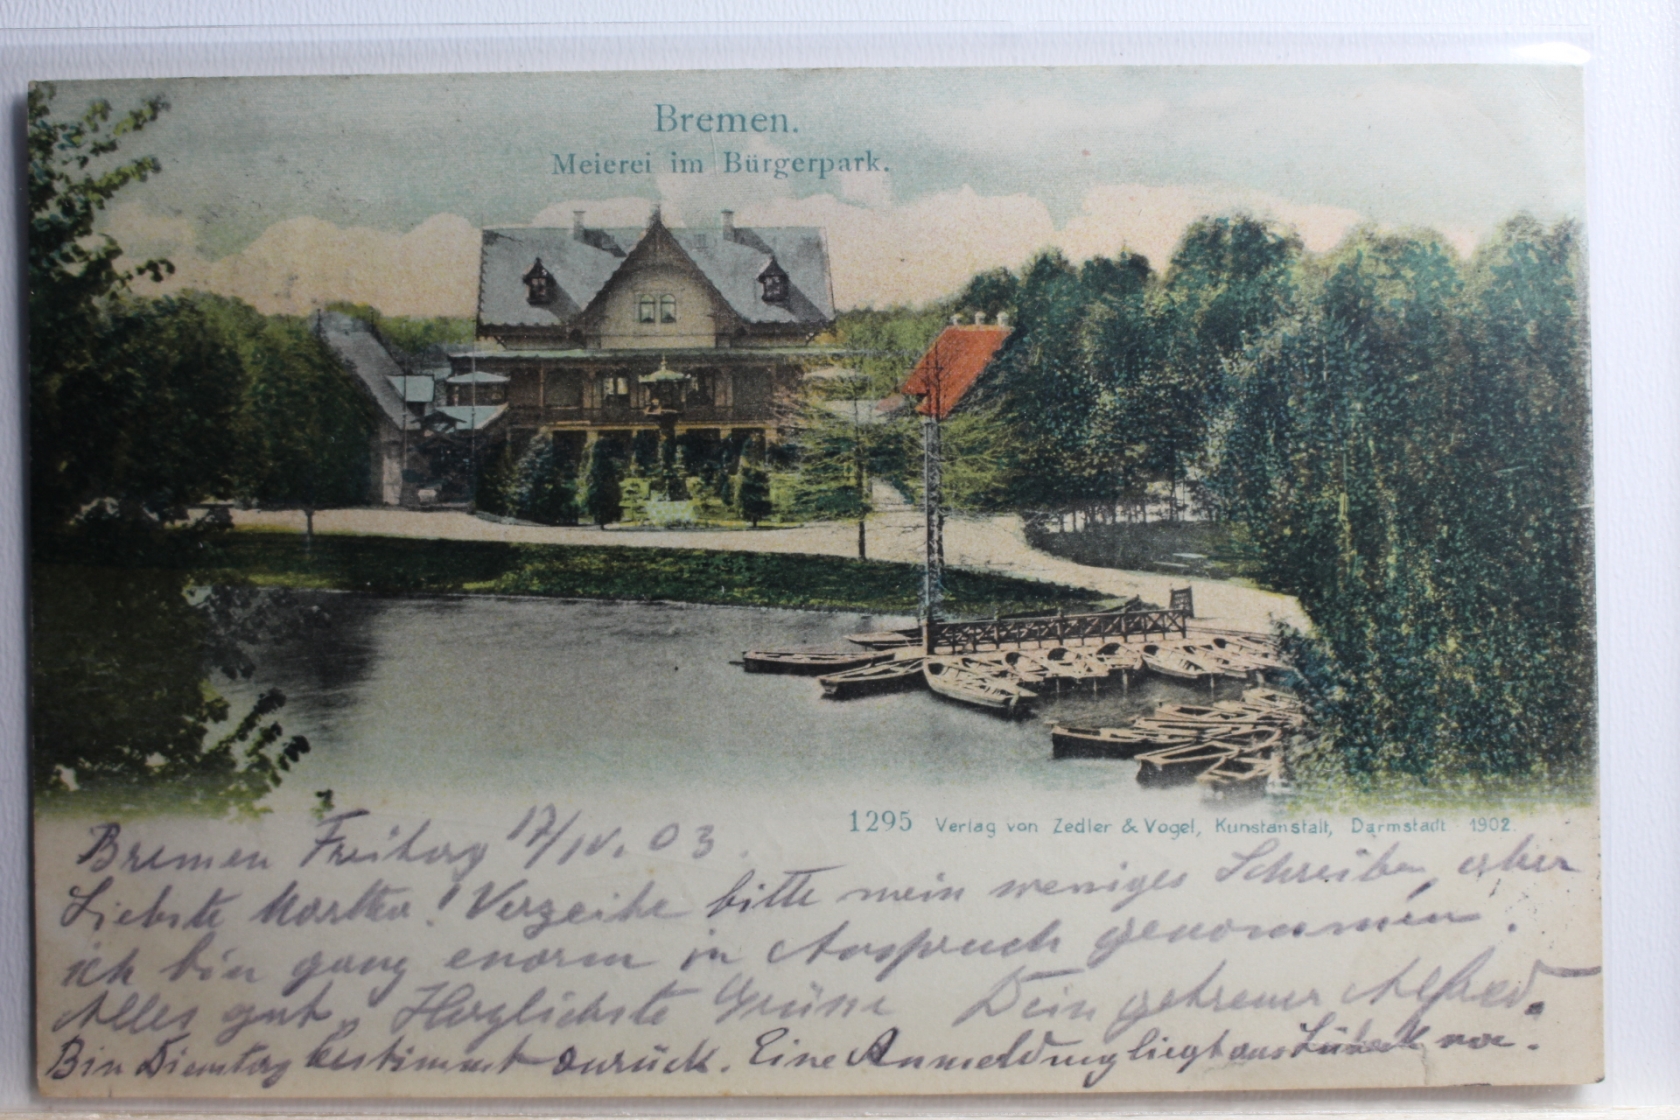 Bremen.
Meierei im Bürgerpark.
1295 Verlag von Zedler & Vogel, Kunstanstalt, Darmstadt 1902.
Bremen Freitag 17/IV. 03.
Liebste Martha! Verzeihe bitte mein weniges Schreiben, aber
ich bin ganz enorm in Anspruch genommen.
Alles gut. Herzlichste Grüsse Dein getreuer Alfred.
Bin Dienstag bestimmt zurück. Eine Anmeldung liegt aus Lübeck vor.